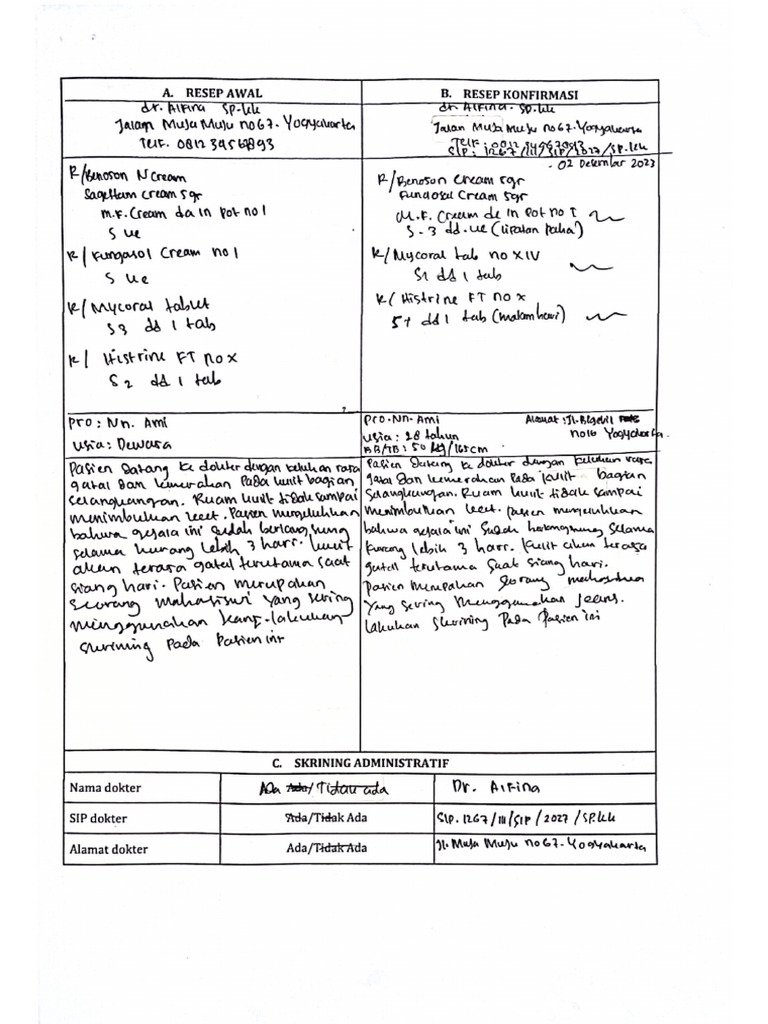 A. RESEP AWAL
dr. Alfina Sp.kk
Jalan Muja Muju no 67. Yogyakarta
Telf. 081234567893
R/ Benoson N Cream
Sagestam cream 5gr
m.f. Cream da in pot no 1
S ue
R/ Fungasol Cream no 1
S ue
R/ Mycoral tablet
S3 dd 1 tab
R/ Histrine FT no X
S2 dd 1 tab
Pro: Nn. Ami
Usia: Dewasa
Pasien Datang ke dokter dengan keluhan rasa
gatal dan kemerahan pada kulit bagian
selangkangan. Ruam kulit tidak sampai
menimbulkan lecet. Pasien mengeluhkan
bahwa gejala ini sudah berlangsung
selama kurang lebih 3 hari. kulit
akan terasa gatal terutama saat
siang hari. Pasien merupakan
seorang mahasiswi yang sering
menggunakan jeans. lakukan
skrining pada pasien ini
B. RESEP KONFIRMASI
dr. Alfina. Sp.kk
Jalan Muja Muju no 67. Yogyakarta
Telf: 081234567893
SIP: 1267/III/SIP/2027/SP.kk
02 Desember 2023
R/ Benoson Cream 5gr
Fundasol Cream 5gr
M.F. Cream de in pot no I
S-3 dd.ue (lipatan paha)
R/ Mycoral tab no XIV
S1 dd 1 tab
R/ Histrine FT no X
S1 dd 1 tab (malam hari)
Pro. Nn. Ami Alamat: Jl.
Usia: 28 tahun no 16 Yogyakarta.
BB/TB: 50 kg/165cm
Pasien Datang ke dokter dengan keluhan rasa
gatal dan kemerahan pada kulit bagian
selangkangan. Ruam kulit tidak sampai
menimbulkan lecet. pasien mengeluhkan
bahwa gejala ini sudah berlangsung selama
kurang lebih 3 hari. Kulit akan terasa
gatal terutama saat siang hari.
Pasien merupakan seorang mahasiswa
yang sering menggunakan jeans.
lakukan skrining pada pasien ini
C. SKRINING ADMINISTRATIF
Nama dokter Ada Ada/Tidak ada Dr. Alfina
SIP dokter Ada/Tidak Ada SIP. 1267/III/SIP/2027/SP.kk
Alamat dokter Ada/Tidak Ada Jl. Muja Muju no 67. Yogyakarta